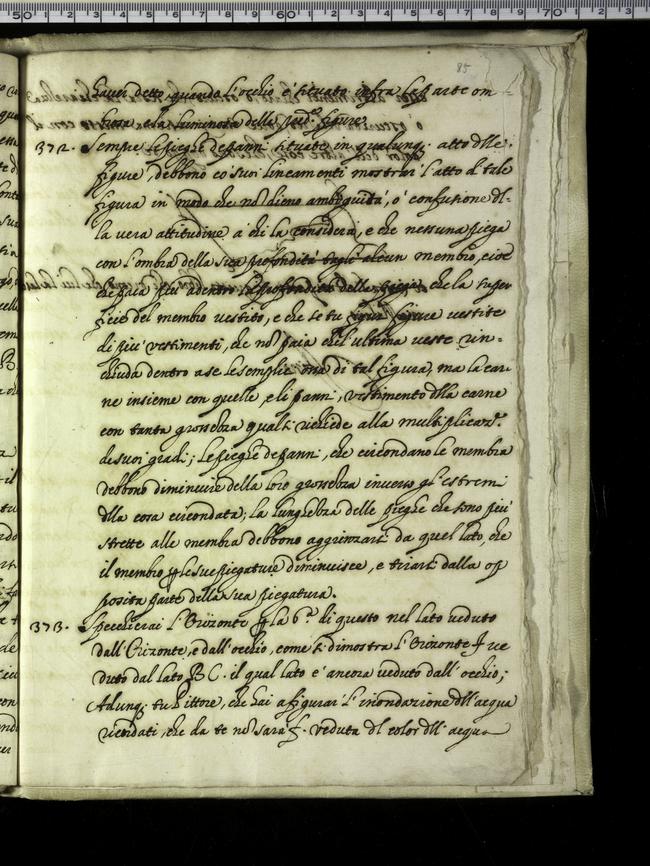 85
haver detto, quando l'occhio è situato infra la parte om-
brosa, e la luminosa delle pred.e figure.
372. Sempre le pieghe de panni situate in qualunq. atto delle
figure, debbono co suoi lineamenti mostrar l'atto di tale
figura in modo che nō dieno ambiguità, ò confusione del-
la vera attitudine à chi la considera, e che nessuna piega
con l'ombra della sua profondità tagli alcun membro, cioè
che paia più adentro la profondità della piega, che la super
ficie del membro vestito, e che se tu figuri figure vestite
di più vestimenti, che nō paia che l'ultima veste rin-
chiuda dentro a se le semplici ossa di tal figura, ma la car
ne insieme con quelle, e li panni, vestimento della carne
con tanta grossezza qual si richiede alla multiplicaz.e
de suoi gradi; Le pieghe de panni, che circondano le membra
debbono diminuire della loro grossezza inverso gl' estremi
della cosa circondata; la lunghezza delle pieghe che sono più
strette alle membra debbono aggrinzarsi da quel lato, che
il membro p le sue piegature diminuisce, e tirarsi dalla op
posita parte della sua piegatura.
373. Specchierai l'Orizonte p la 6.a di questo nel lato veduto
dall'Orizonte, e dall'occhio, come si dimostra l'Orizonte F ve
duto dal lato BC. il qual lato è ancora veduto dall'occhio;
Adunq. tu Pittore, che hai a figurar l'inondazione dell'acqua
ricordati, che da te nō sarà veduta del color dell'acqua